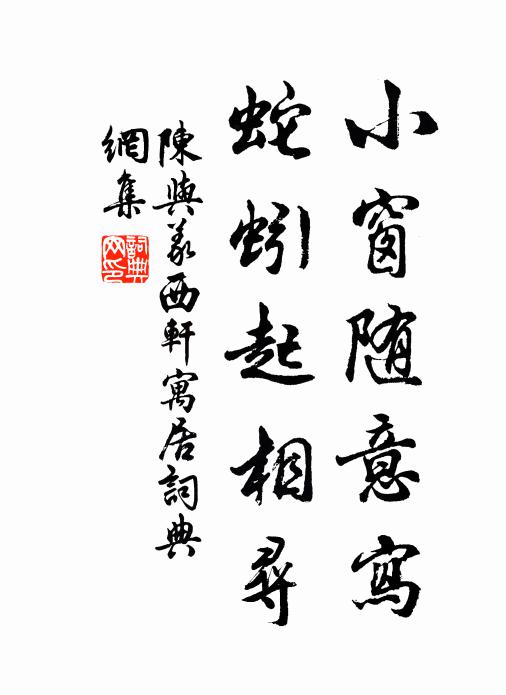 小窗随意寫
蛇蚓起相尋
陳與義西軒寓居詞典
網集
詞典網印